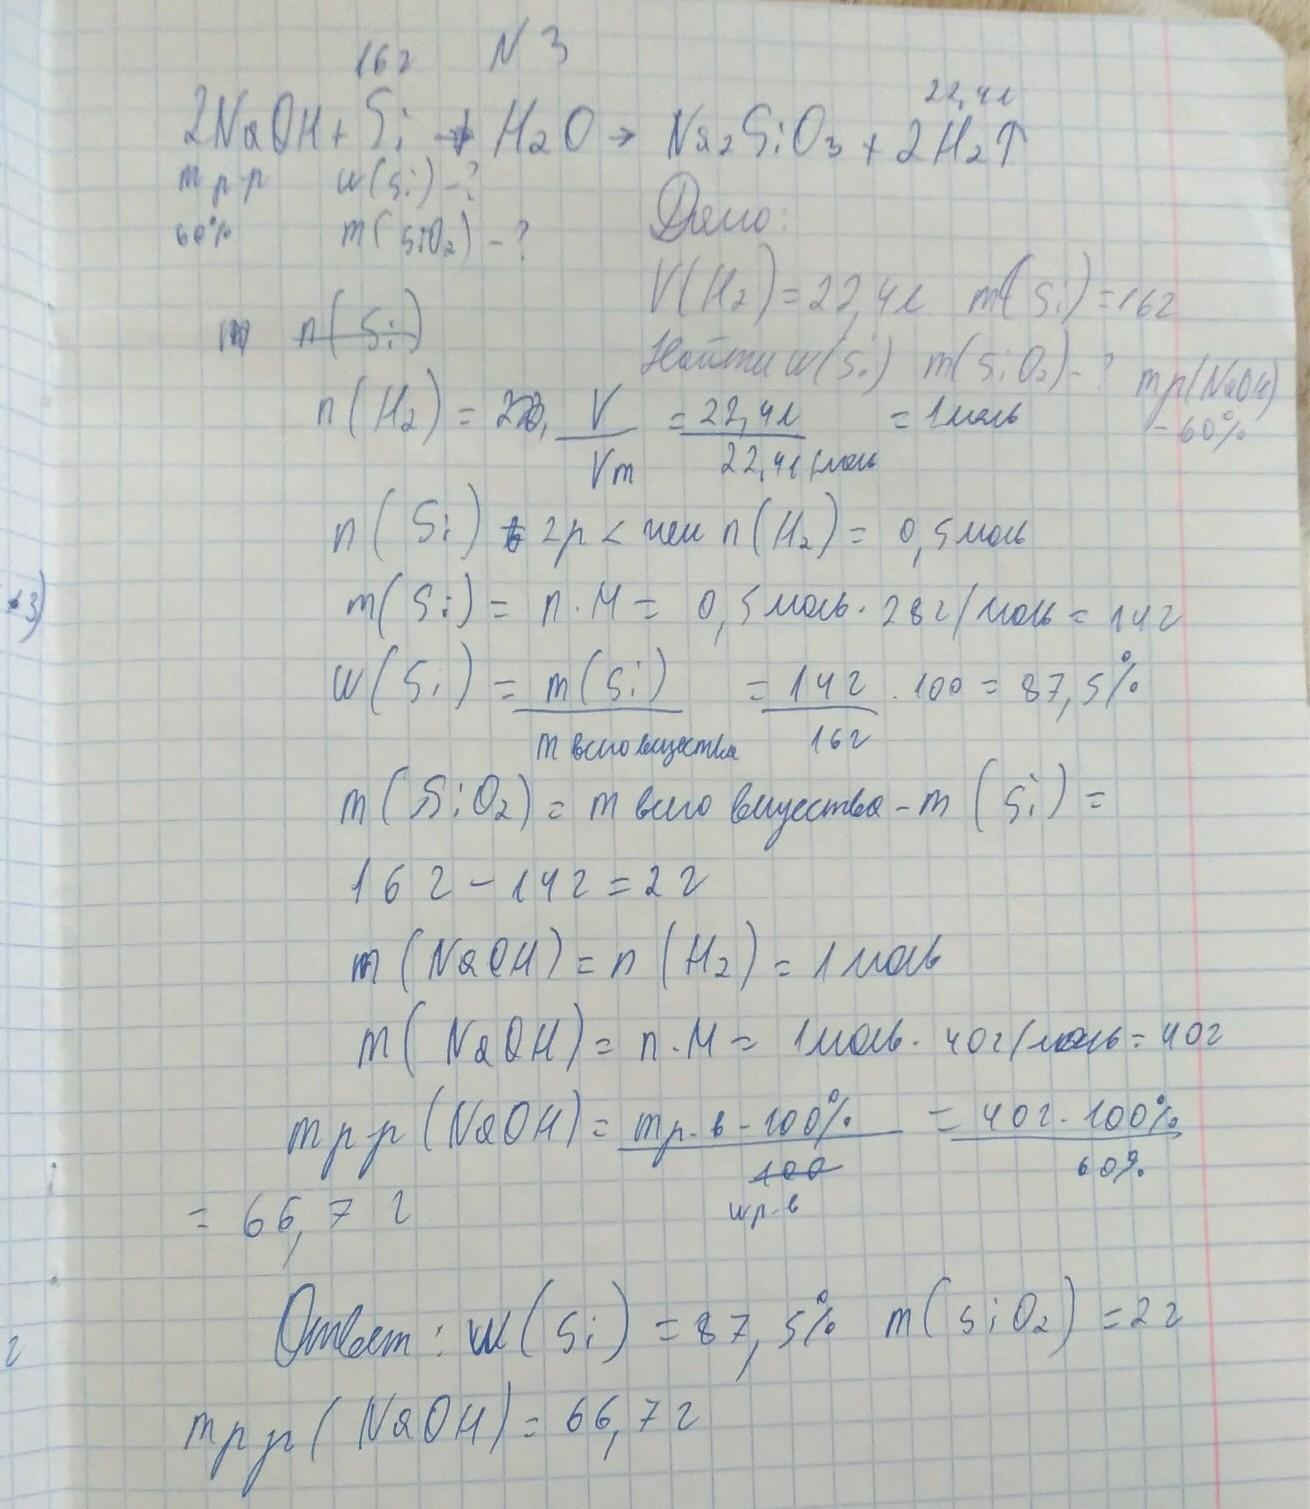 N 3
16г
22,4л
2NaOH + Si + H2O → Na2SiO3 + 2H2↑
m р р w(Si) - ?
60% m(SiO2) - ?
Дано:
V(H2) = 22,4л m(Si) = 16г
n(Si)
Найти w(Si) m(SiO2) - ? mр(NaOH)
- 60%
n(H2) = V = 22,4л = 1моль
Vm 22,4л/моль
n(Si) в 2р < чем n(H2) = 0,5моль
m(Si) = n·M = 0,5моль · 28г/моль = 14г
w(Si) = m(Si) = 14г · 100 = 87,5%
m всего вещества 16г
m(SiO2) = m всего вещества - m(Si) =
16г - 14г = 2г
m(NaOH) = n(H2) = 1моль
m(NaOH) = n·M = 1моль · 40г/моль = 40г
mр р(NaOH) = mр.в - 100% = 40г · 100%
100 60%
wр.в
= 66,7 г
Ответ: w(Si) = 87,5% m(SiO2) = 2г
mр р(NaOH) = 66,7г
+3)
г